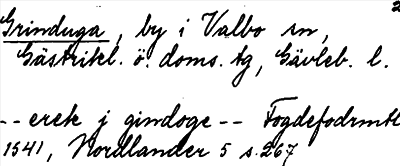 2
Grinduga, by i Valbo sn,
Gästrikl. ö. doms. tg, Gävleb. l.
-- erek j gindoge -- Fogdefodrmtl
1541, Nordlander 5 s. 267